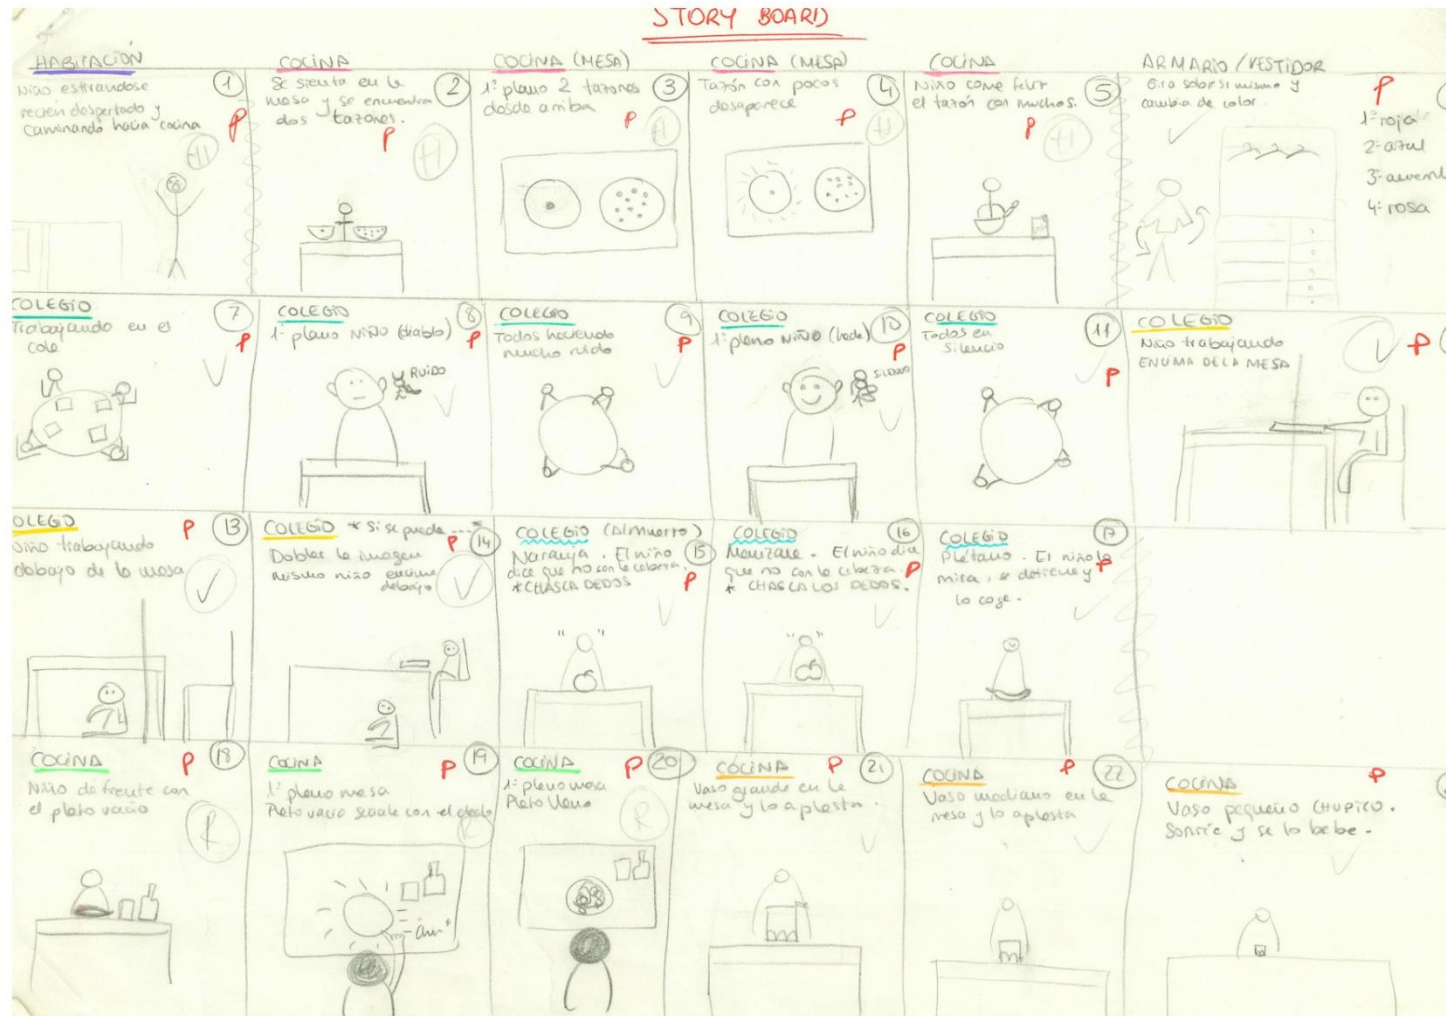 STORY BOARD
HABITACIÓN
1
Niño estirandose
recien despertado y
caminando hacia cocina
P
H
COCINA
2
Se sienta en la
mesa y se encuentra
dos tazones.
P
H
COCINA (MESA)
3
1º plano 2 tazones
desde arriba
P
H
COCINA (MESA)
4
Tazón con pocos
desaparece
P
H
COCINA
5
Niño come feliz
el tazón con muchos.
P
H
ARMARIO/VESTIDOR
Gira sobre si mismo y
cambia de color.
P
1º roja
2º azul
3º
4º rosa
COLEGIO
7
Trabajando en el
cole
P
COLEGIO
8
1º plano NIÑO (diablo)
P
RUIDO
COLEGIO
9
Todos haciendo
mucho ruido
P
COLEGIO
10
1º plano NIÑO (hada)
P
COLEGIO
11
Todos en
silencio
P
COLEGIO
Niño trabajando
ENCIMA DE LA MESA
P
OLEGIO
P
13
Niño trabajando
debajo de la mesa
COLEGIO * Si se puede ... *
P
14
Doblar la imagen
mismo niño encima
debajo
COLEGIO (Almuerzo)
Naranja. El niño
15
dice que no con la cabeza.
* CHASCA DEDOS
P
COLEGIO
16
Manzana. El niño dice
que no con la cabeza.
P
* CHASCA LOS DEDOS.
COLEGIO
17
Plátano. El niño lo
P
mira, se detiene y
lo coge.
COCINA
P
18
Niño de frente con
el plato vacio
R
COCINA
P
19
1º plano mesa
Plato vacio señala con el dedo
R
COCINA
P
20
1º plano mesa
Plato lleno
R
COCINA
P
21
Vaso grande en la
mesa y lo aplasta.
COCINA
P
22
Vaso mediano en la
mesa y lo aplasta
COCINA
P
Vaso pequeño CHUPITO.
Sonríe y se lo bebe.